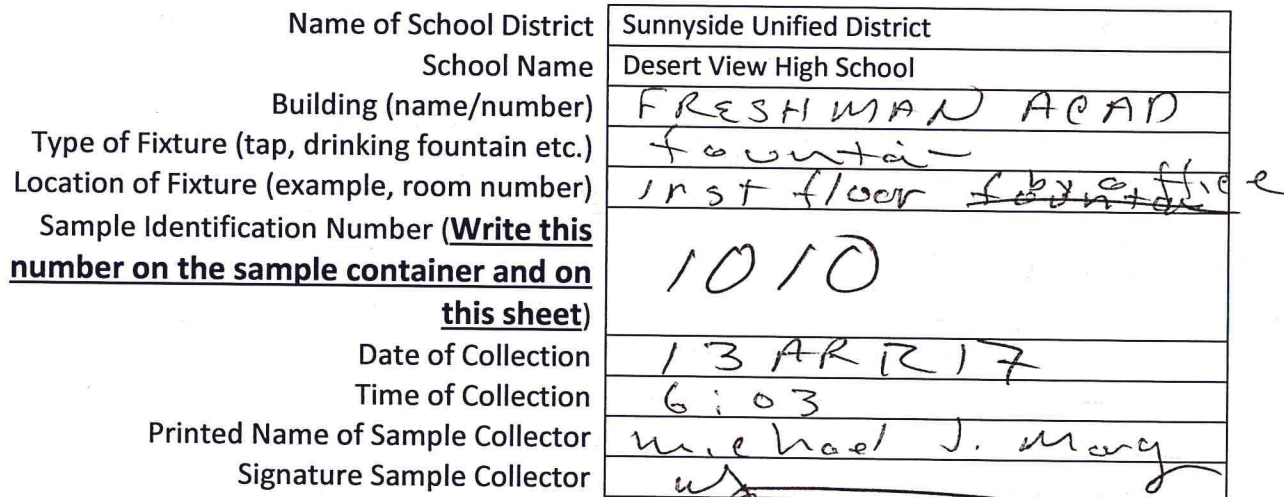 Name of School District Sunnyside Unified District
School Name Desert View High School
Building (name/number) FRESHMAN ACAD
Type of Fixture (tap, drinking fountain etc.) fountain
Location of Fixture (example, room number) 1rst floor by office
Sample Identification Number (Write this
number on the sample container and on
this sheet) 1010
Date of Collection 13 APR 17
Time of Collection 6:03
Printed Name of Sample Collector Michael J.
Signature Sample Collector